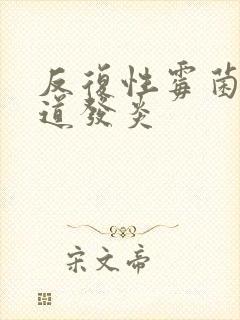 反復性霉菌
道發炎
宋文帝